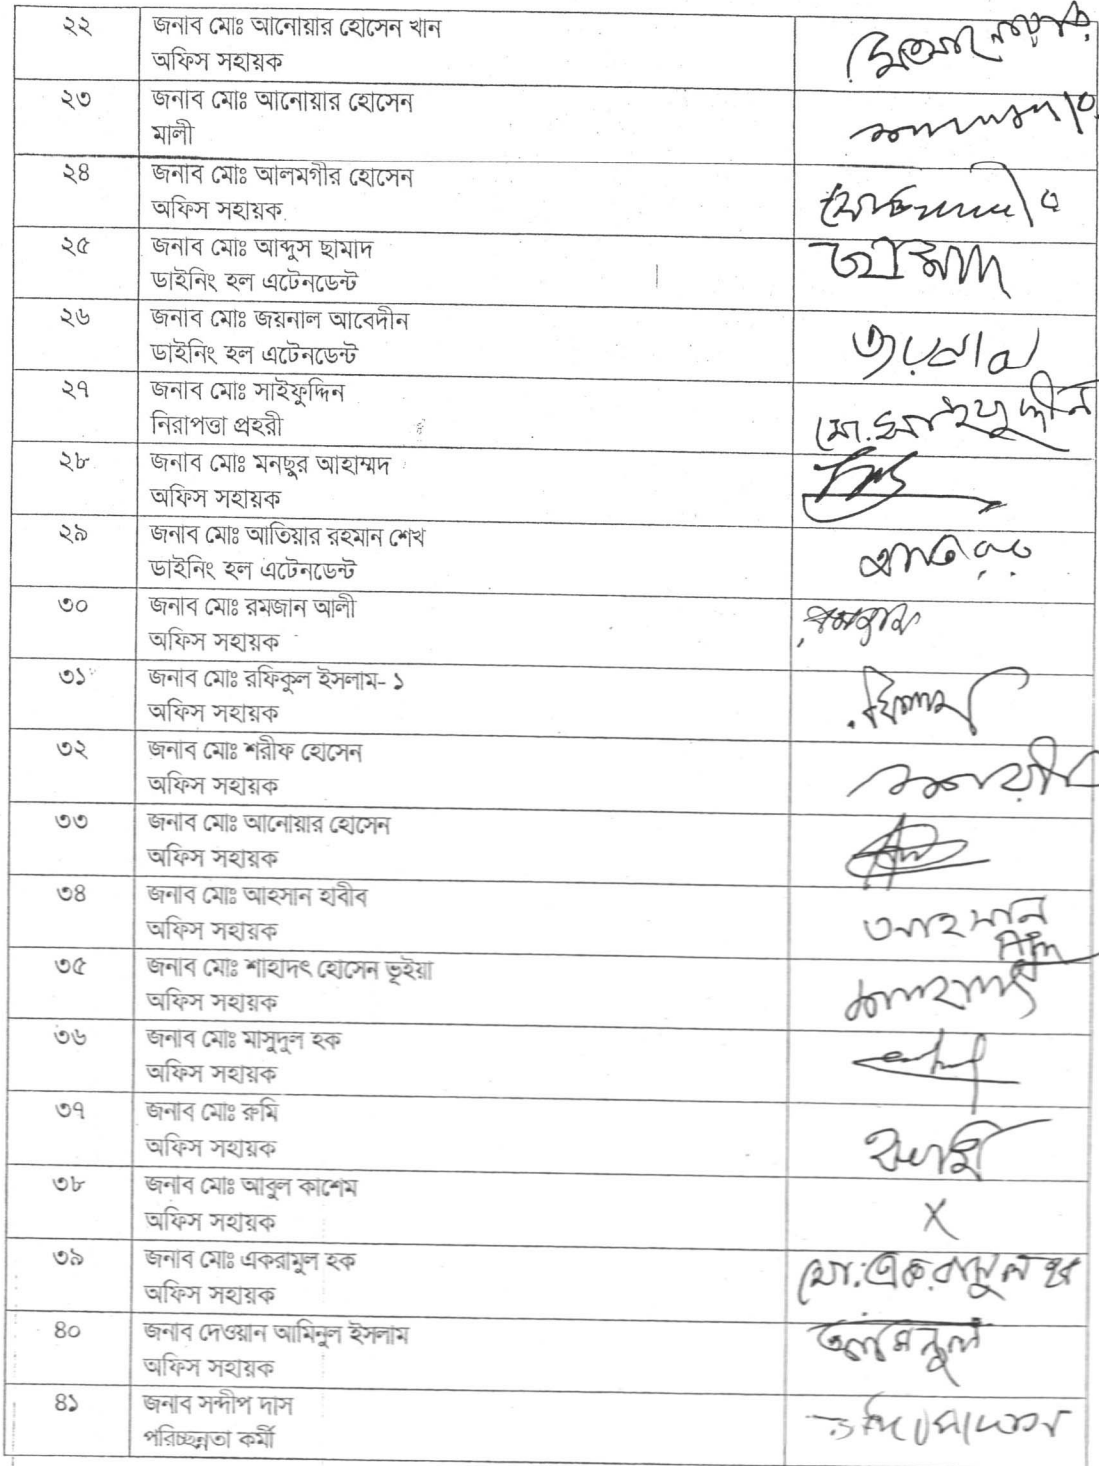 ২২ জনাব মোঃ আনোয়ার হোসেন খান
অফিস সহায়ক
২৩ জনাব মোঃ আনোয়ার হোসেন
মালী
২৪ জনাব মোঃ আলমগীর হোসেন
অফিস সহায়ক
২৫ জনাব মোঃ আব্দুস ছামাদ
ডাইনিং হল এটেনডেন্ট
২৬ জনাব মোঃ জয়নাল আবেদীন
ডাইনিং হল এটেনডেন্ট
জয়নাল
২৭ জনাব মোঃ সাইফুদ্দিন
নিরাপত্তা প্রহরী
মো. সাইফুদ্দীন
২৮ জনাব মোঃ মনছুর আহাম্মদ
অফিস সহায়ক
২৯ জনাব মোঃ আতিয়ার রহমান শেখ
ডাইনিং হল এটেনডেন্ট
৩০ জনাব মোঃ রমজান আলী
অফিস সহায়ক
৩১ জনাব মোঃ রফিকুল ইসলাম- ১
অফিস সহায়ক
৩২ জনাব মোঃ শরীফ হোসেন
অফিস সহায়ক
৩৩ জনাব মোঃ আনোয়ার হোসেন
অফিস সহায়ক
৩৪ জনাব মোঃ আহসান হাবীব
অফিস সহায়ক
আহসান
৩৫ জনাব মোঃ শাহাদৎ হোসেন ভূইয়া
অফিস সহায়ক
শাহাদৎ
৩৬ জনাব মোঃ মাসুদুল হক
অফিস সহায়ক
৩৭ জনাব মোঃ রুমি
অফিস সহায়ক
৩৮ জনাব মোঃ আবুল কাশেম
অফিস সহায়ক
X
৩৯ জনাব মোঃ একরামুল হক
অফিস সহায়ক
মো: একরামুল হক
৪০ জনাব দেওয়ান আমিনুল ইসলাম
অফিস সহায়ক
আমিনুল
৪১ জনাব সন্দীপ দাস
পরিচ্ছন্নতা কর্মী